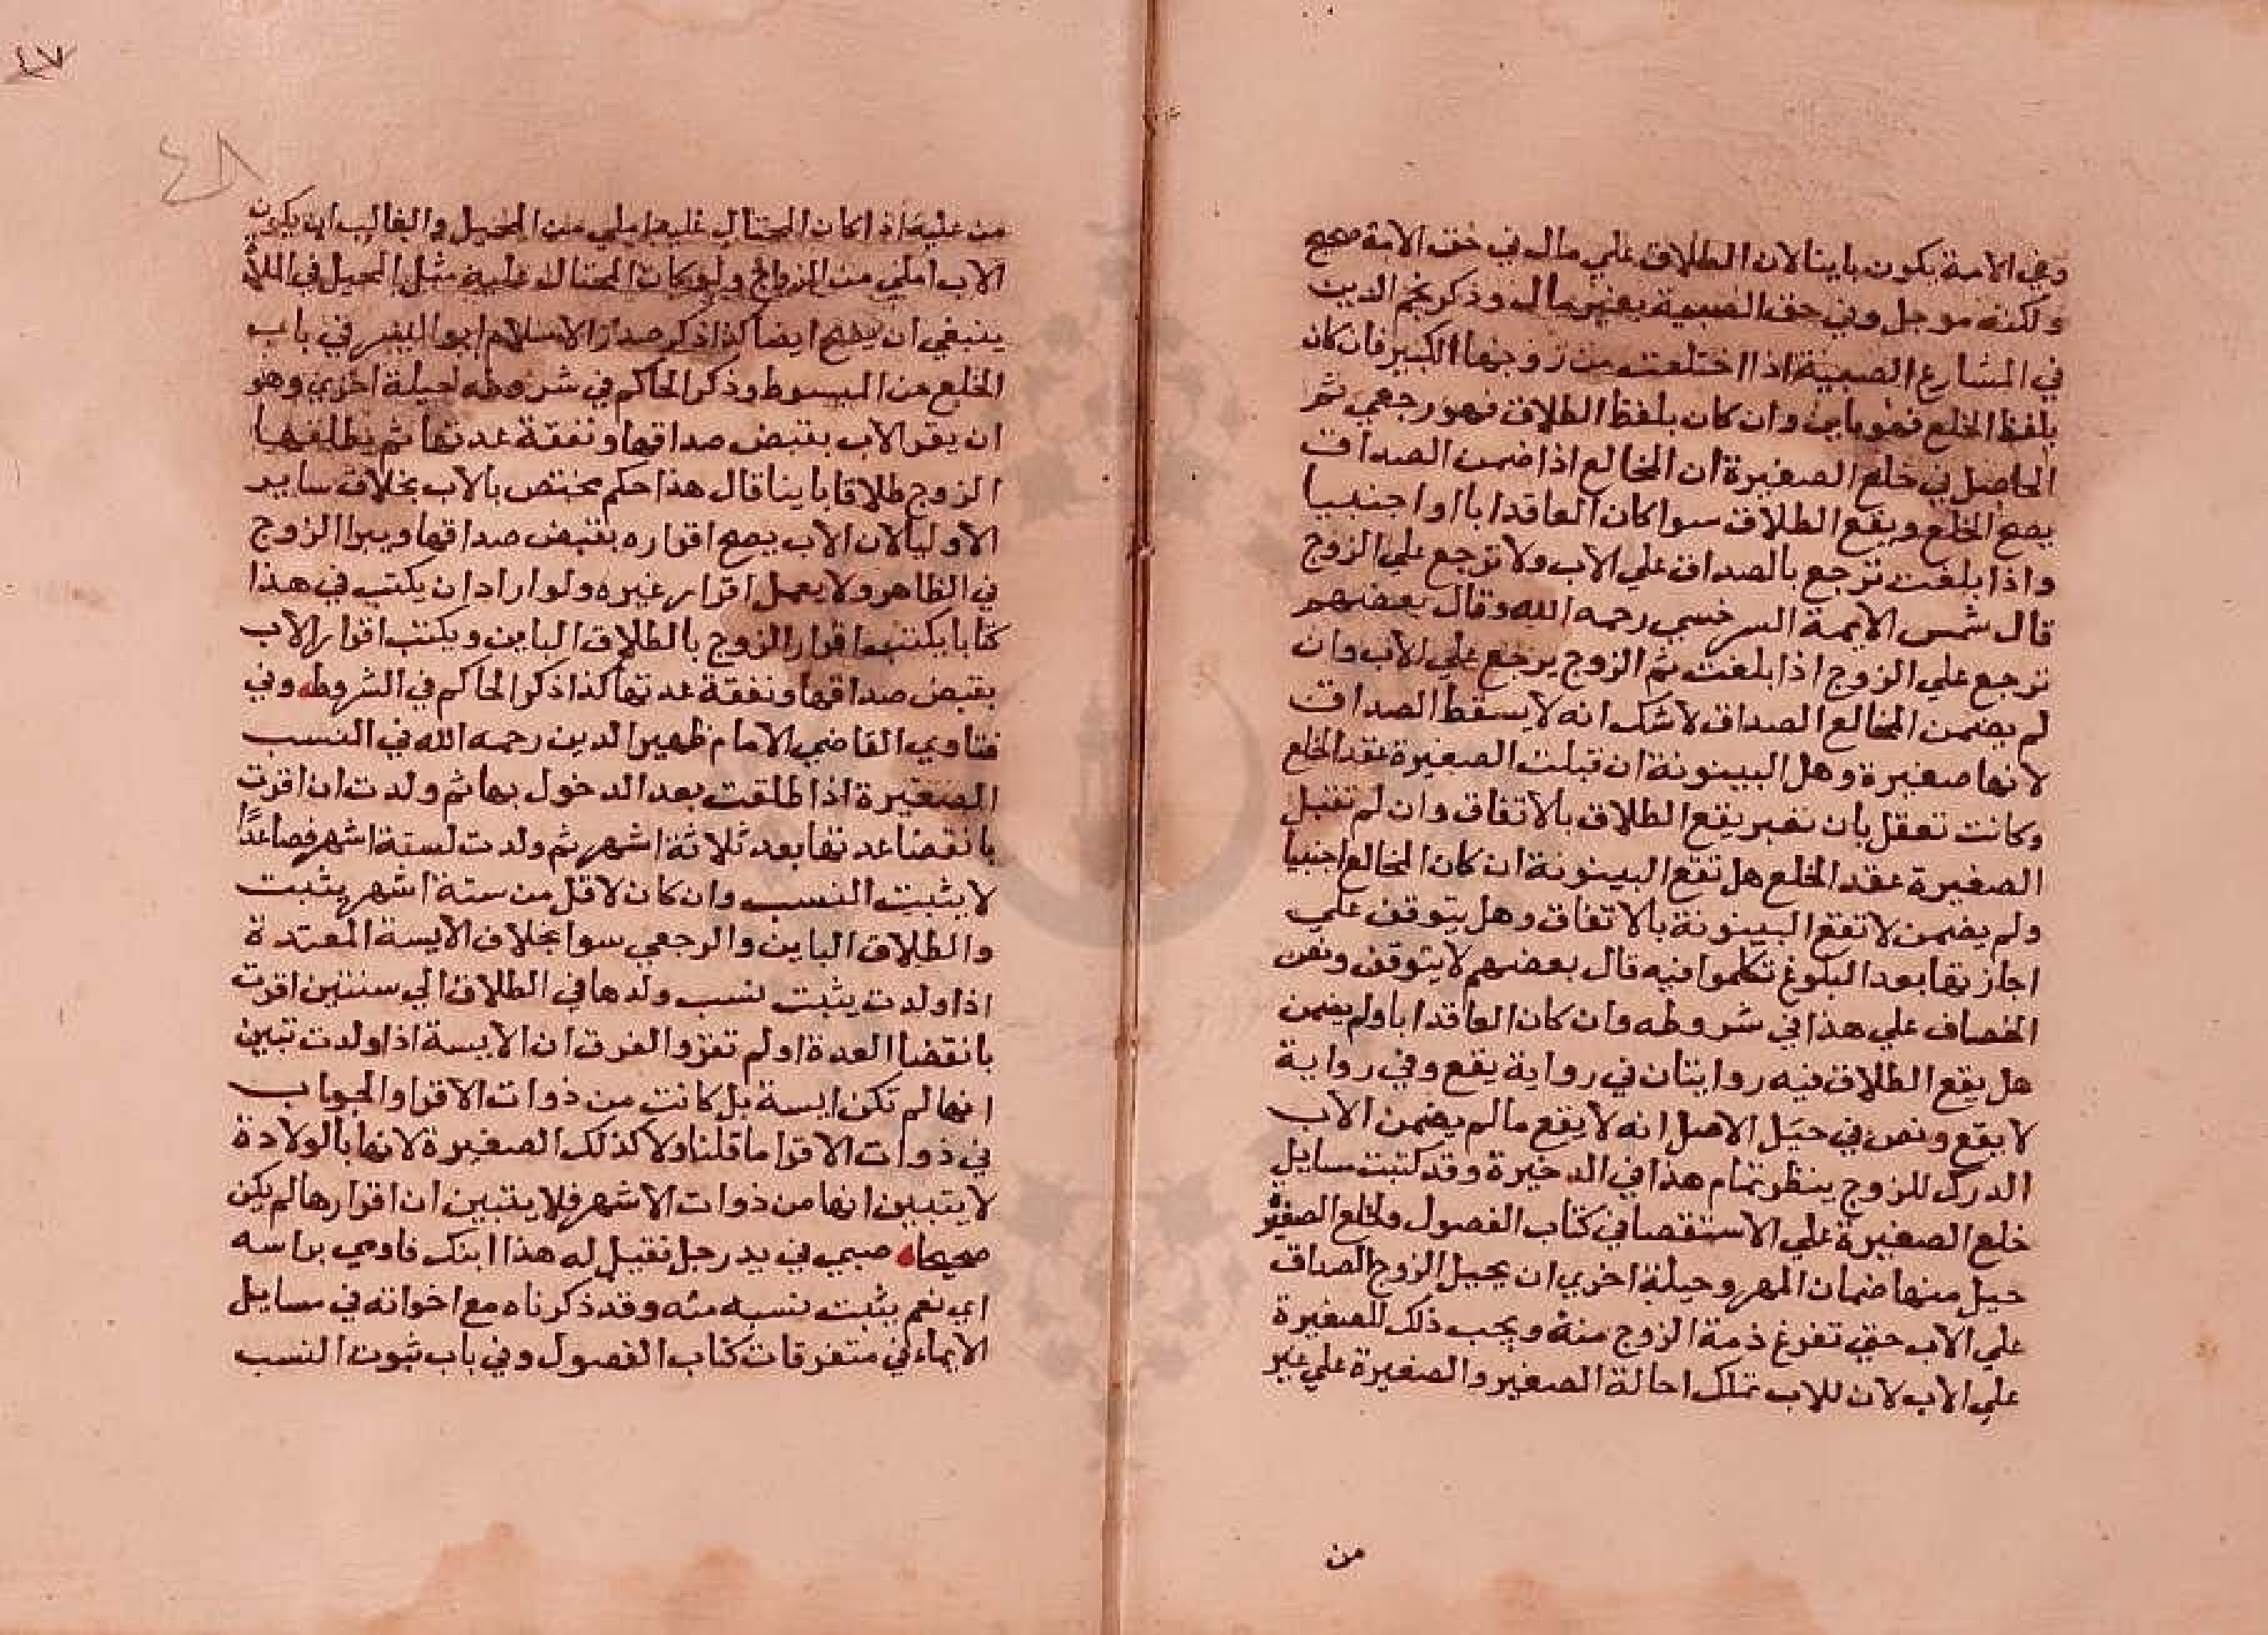 وفي الامة يكون باينا لان الطلاق علي مال في حق الامة صحيح
ولكنه موجل وفي حق الصبية بغير مال وذكر نجم الدين
في المشارع الصبية اذا اختلعت من زوجها الكبير فان كان
بلفظ الخلع فهو باين وان كان بلفظ الطلاق فهو رجعي ثم
الحاصل في خلع الصغيرة ان المخالع اذا ضمن الصداق
يصح الخلع ويقع الطلاق سوا كان العاقد ابا او اجنبيا
واذا بلغت ترجع بالصداق علي الاب ولا ترجع علي الزوج
قال شمس الايمة السرخسي رحمه الله وقال بعضهم
ترجع علي الزوج اذا بلغت ثم الزوج يرجع علي الاب وان
لم يضمن المخالع الصداق لا شك انه لا يسقط الصداق
لانها صغيرة وهل البينونة ان قبلت الصغيرة عقد الخلع
وكانت تعقل بان تعبر يقع الطلاق بالاتفاق وان لم تقبل
الصغيرة عقد الخلع هل تقع البينونة ان كان المخالع اجنبيا
ولم يضمن لا تقع البينونة بالاتفاق وهل يتوقف علي
اجازتها بعد البلوغ تكلموا فيه قال بعضهم لا يتوقف ونص
الخصاف علي هذا في شروطه وان كان العاقد ابا ولم يضمن
هل يقع الطلاق فيه روايتان في رواية يقع وفي رواية
لا يقع ونص في حيل الاصل انه لا يقع ما لم يضمن الاب
الدرك للزوج ينظر تمام هذا في الدخيرة وقد كتبت مسايل
خلع الصغيرة علي الاستقصا في كتاب الفصول ولخلع الصغير
حيل منها ضمان المهر وحيلة اخري ان يحيل الزوج الصداق
علي الاب حتي تفرغ ذمة الزوج منه ويجب ذلك للصغيرة
علي الاب لان للاب تملك احالة الصغير والصغيرة علي غير
من
٤٧
٤٨
من عليه اذا كان المحتال عليه املي من المحيل والغالب ان يكون
الاب املي من الزواج ولو كان المحتال عليه مثل المحيل في الملأ
ينبغي ان يصح ايضا كذا ذكر صدر الاسلام ابو اليسر في باب
الخلع من المبسوط وذكر الحاكم في شروطه لحيلة اخري وهو
ان يقر الاب بقبض صداقها ونفقة عدتها ثم يطلقها
الزوج طلاقا باينا قال هذا حكم مختص بالاب بخلاف ساير
الاوليا لان الاب يصح اقراره بقبض صداقها ويبرا الزوج
في الظاهر ولا يعمل اقرار غيره ولو اراد ان يكتب في هذا
كتابا يكتب اقرار الزوج بالطلاق الباين ويكتب اقرار الاب
بقبض صداقها ونفقة عدتها كذا ذكر الحاكم في الشروط وفي
فتاوي القاضي الامام ظهير الدين رحمه الله في النسب
الصغيرة اذا طلقت بعد الدخول بها ثم ولدت ان اقرت
بانقضا عدتها بعد ثلاثة اشهر ثم ولدت لستة اشهر فصاعدًا
لا يثبت النسب وان كان لاقل من ستة اشهر يثبت
والطلاق الباين والرجعي سوا بخلاف الآيسة المعتدة
اذا ولدت يثبت نسب ولدها في الطلاق الي سنتين اقرت
بانقضا العدة او لم تقر والفرق ان الايسة اذا ولدت تبين
انها لم تكن ايسة بل كانت من ذوات الاقرا والجواب
في ذوات الاقرا ما قلنا ولا كذلك الصغيرة لانها بالولادة
لا يتبين انها من ذوات الاشهر فلا يتبين ان اقرارها لم يكن
صحيحا صبي في يد رجل فقيل له هذا ابنك فاومي براسه
اي نعم يثبت نسبه منه وقد ذكرناه مع اخواته في مسايل
الايماء في متفرقات كتاب الفصول وفي باب ثبوت النسب